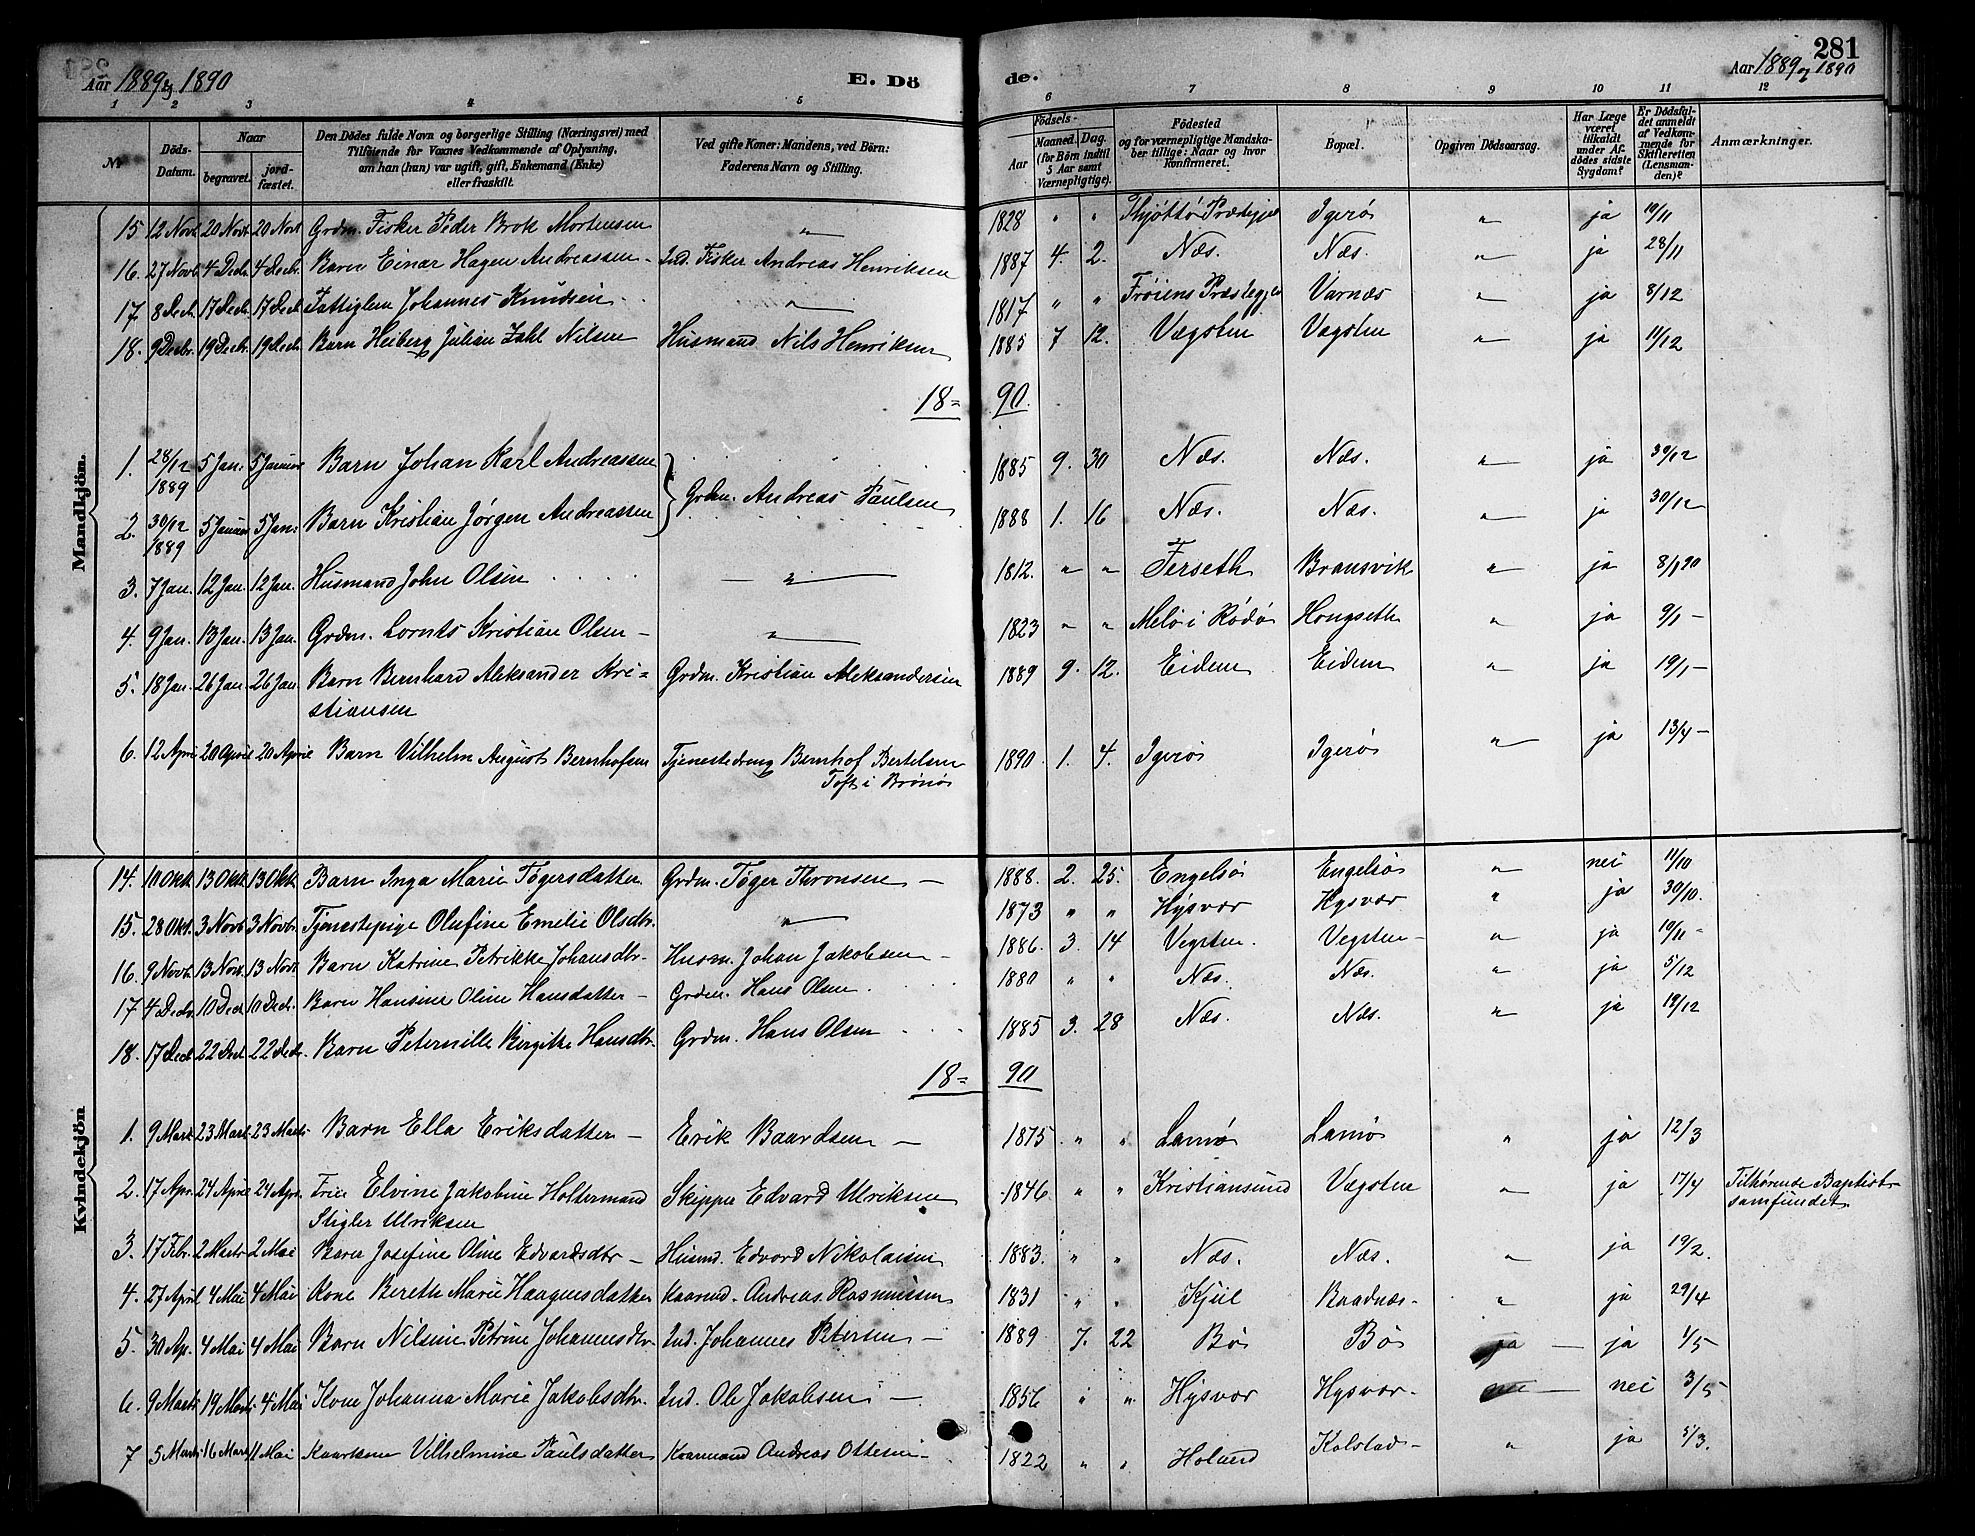 Aar 1889 og 1890
E. Döde.
281
Aar 1889 og 1890
1 2 3 4 5 6 7 8 9 10 11 12
Nr
Döds-Datum.
Naar
begravet.
jordfæstet.
Den Dödes fulde Navn og borgerlige Stilling (Næringsvei) med
Tilföiende for Voxnes Vedkommende af Oplysning,
om han (hun) var ugift, gift, Enkemand (Enke)
eller fraskilt.
Ved gifte Koner: Mandens, ved Börn:
Faderens Navn og Stilling.
Födsels-
Aar
Maaned. Dag.
(for Börn indtil
5 Aar samt
Værnepligtige).
Födested
og for værnepligtige Mandskaber tillige: Naar og hvor
konfirmeret.
Bopæl.
Opgiven Dödsaarsag.
Har Læge
været
tilkaldt
under Afdödes sidste
Sygdom?
Er Dödsfaldet anmeldt
af Vedkommende for
Skifteretten
(Lensmanden)?
Anmærkninger.
Mandkjön.
15 12 Novb 20 Novb 20 Novb Grdm. Fisker Peder Brok Mortensen " 1828 " " Thjøttø Præstegjeld Igerø " ja 19/11
16. 27 Novb. 4 Decb. 4 Decbr. Barn Einar Hagen Andreassen - Ind. Fisker Andreas Henriksen 1887 4. 2. Næs. Næs. " ja 28/11
17 8 Decb. 17 Decb. 17 Decb Fattiglem Johannes Knudsen " 1817 " " Frøiens Præstegjeld Varnæs " ja 8/12
18. 9 Decbr. 19 Decbr. 19 Decb. Barn Heiberg Julian Zahl Nilsen Husmand Nils Henriksen 1885 7 12. Vægsten Vægsten " ja 11/12
18 = 90
1. 28/12 1889 5 Jan. 5 Januar Barn Johan Karl Andreassen } Grdm. Andreas Paulsen 1885 9. 30 Næs. Næs. " ja 30/12
2. 30/12 1889 5 Januar 5 Jan: Barn Kristian Jørgen Andreassen 1888 1. 16 Næs. Næs. " ja 30/12
3. 7 Jan. 12 Jan 12 Jan. Husmand John Olsen " 1812. " " Ferseth Bransvik " ja 8/1 90
4. 9 Jan. 13 Jan. 13 Jan. Grdm. Lornts Kristian Olsen - " 1823 " " Melø i Rødø Hongseth " ja 9/1 -
5. 18 Jan. 26 Jan 26 Jan Barn Bernhard Aleksander Kri- Grdm. Kristian Aleksandersen 1889 9. 12. Eidem Eidem " ja 19/1 -
stiansen
6. 12 April 20 April 20 April Barn Vilhelm August Bernhofsen Tjenestedreng Bernhof Bertelsen 1890 1. 4. Igerø Igerø " ja 13/4 -
Toft i Brønø
Kvindekjön
14. 10 Okt. 13 Okt. 13 Okt. Barn Inga Marie Tøgersdatter Grdm. Tøger Thronsen - 1888. 2. 25. Engelsø Engelsø " nei 11/10
15. 28 Okt. 3 Novb 3 Novbr. Tjenestepige Olufine Emelie Olsdtr. " 1873 " " Hysvær Hysvær " ja 30/10.
16 9 Novb. 13 Nov. 13 Novb Barn Katrine Petrikke Johansdtr. Husm. Johan Jakobsen - 1886. 3. 14 Vegsten. Vegsten - " ja 19/11 -
17 4 Decb. 10 Decb 10 Decb. Barn Hansine Oline Hansdatter - Grdm. Hans Olsen. 1880 " " Næs. Næs. " ja 5/12
18. 17 Decb 22 Decb 22 Decb. Barn Peternille Bergithe Hansdtr. Grdm. Hans Olsen 1885 3. 28 Næs. Næs. " ja 19/12
18 = 90
1. 9 Marts 23 Marts 23 Marts Barn Ella Eriksdatter - Erik Baardsen - 1875. " " Lamø Lamø " ja 12/3
2. 17 Apr. 24 April 24 Apr. Frue Elvine Jakobine Holtermand Skipper Edvard Ulriksen 1846 " " Kristiansund Vægsten " ja 17/4 Tilhørende Baptist-
Stigler Ulriksen samfundet
3. 17 Febr. 2 Marts 2 Mai Barn Josefine Oline Edvardsdtr - Husmd. Edvard Nikolaisen 1883. " " Næs. Næs. " ja 19/2.
4. 27 April 4 Mai 4 Mai Kone Bereth Marie Haagensdatter Kaarmd. Andreas Rasmussen 1831 " " Kjul Baadnæs - " ja 29/4
5 30 Ap. 4 Mai 4 Mai Barn Nilsine Petrine Johannesdtr. Ind. Johannes Petersen - 1889 7. 22 Bø Bø ja - ja 1/5
6. 9 Marts 19 Marts 4 Mai Kone Johanna Marie Jakobsdtr. Ind. Ole Jakobsen - 1856 " " Hysvær Hysvær - nei 3/5
7 5 Marts 16 Marts 11 Mai Kaarkone Vilhelmine Paulsdatter Kaarmand Andreas Ottesen - 1822 " " Holand Kolstad - " ja 5/3.